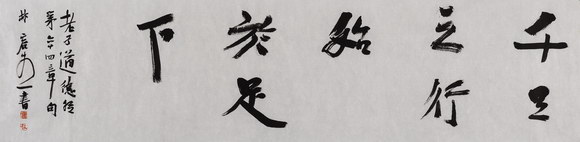 千里
之行
始
於足
下
老子道德經
第六十四章句
書